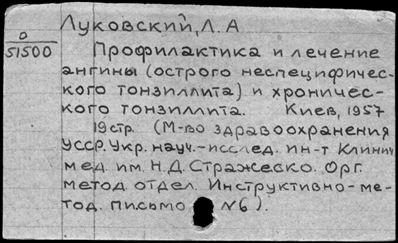 Луковский, Л. А
О
51500
Профилактика и лечение
ангины (острого неспецифичес-
кого тонзиллита) и хроничес-
кого тонзиллита. Киев, 1957
19 стр. (М-во здравоохранения
УССР. Укр. науч.-исслед. ин-т Клинич
мед. им. Н.Д. Стражеско. Орг.
метод отдел. Инструктивно-ме-
тод. письмо №6).